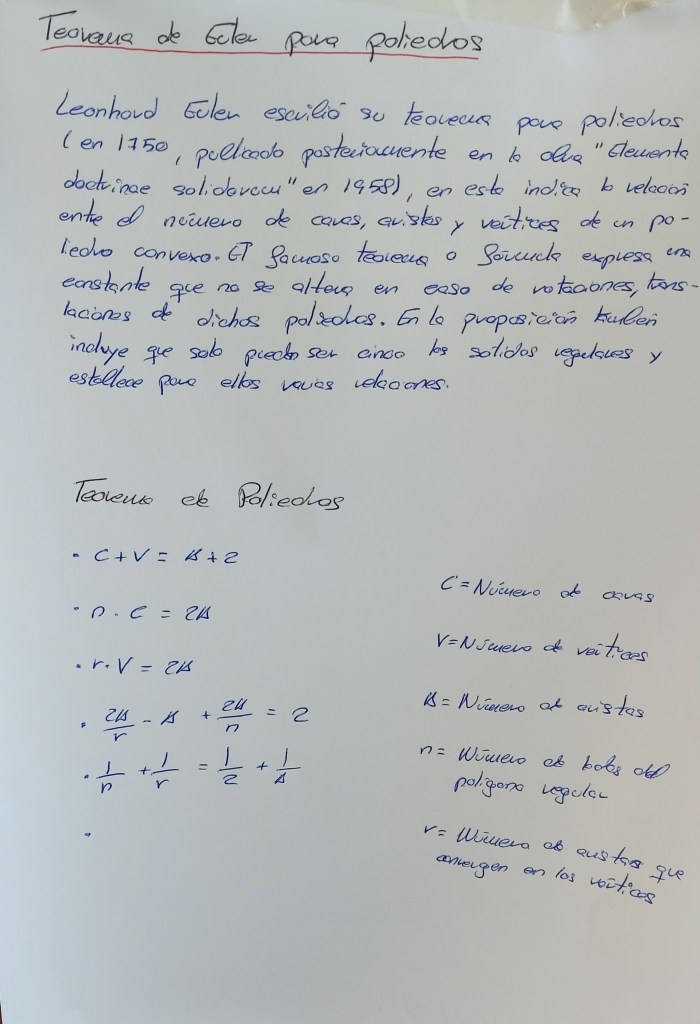 Teorema de Euler para poliedros
Leonhard Euler escribió su teorema para poliedros
(en 1750, publicado posteriormente en la obra "Elementa
doctrinae solidorum" en 1958), en esta indica la relación
entre el número de caras, aristas y vértices de un po-
liedro convexo. El famoso teorema o fórmula expresa una
constante que no se altera en caso de rotaciones, trans-
laciones de dichos poliedros. En la proposición también
incluye que solo pueden ser cinco los solidos regulares y
establece para ellos varias relaciones.
Teorema de Poliedros
• C + V = A + 2
• n · C = 2A
• r · V = 2A
• 2A/r - A + 2A/n = 2
• 1/n + 1/r = 1/2 + 1/A
•
C = Número de caras
V = Número de vértices
A = Número de aristas
n = Número de lados del
polígono regular
r = Número de aristas que
convergen en los vértices